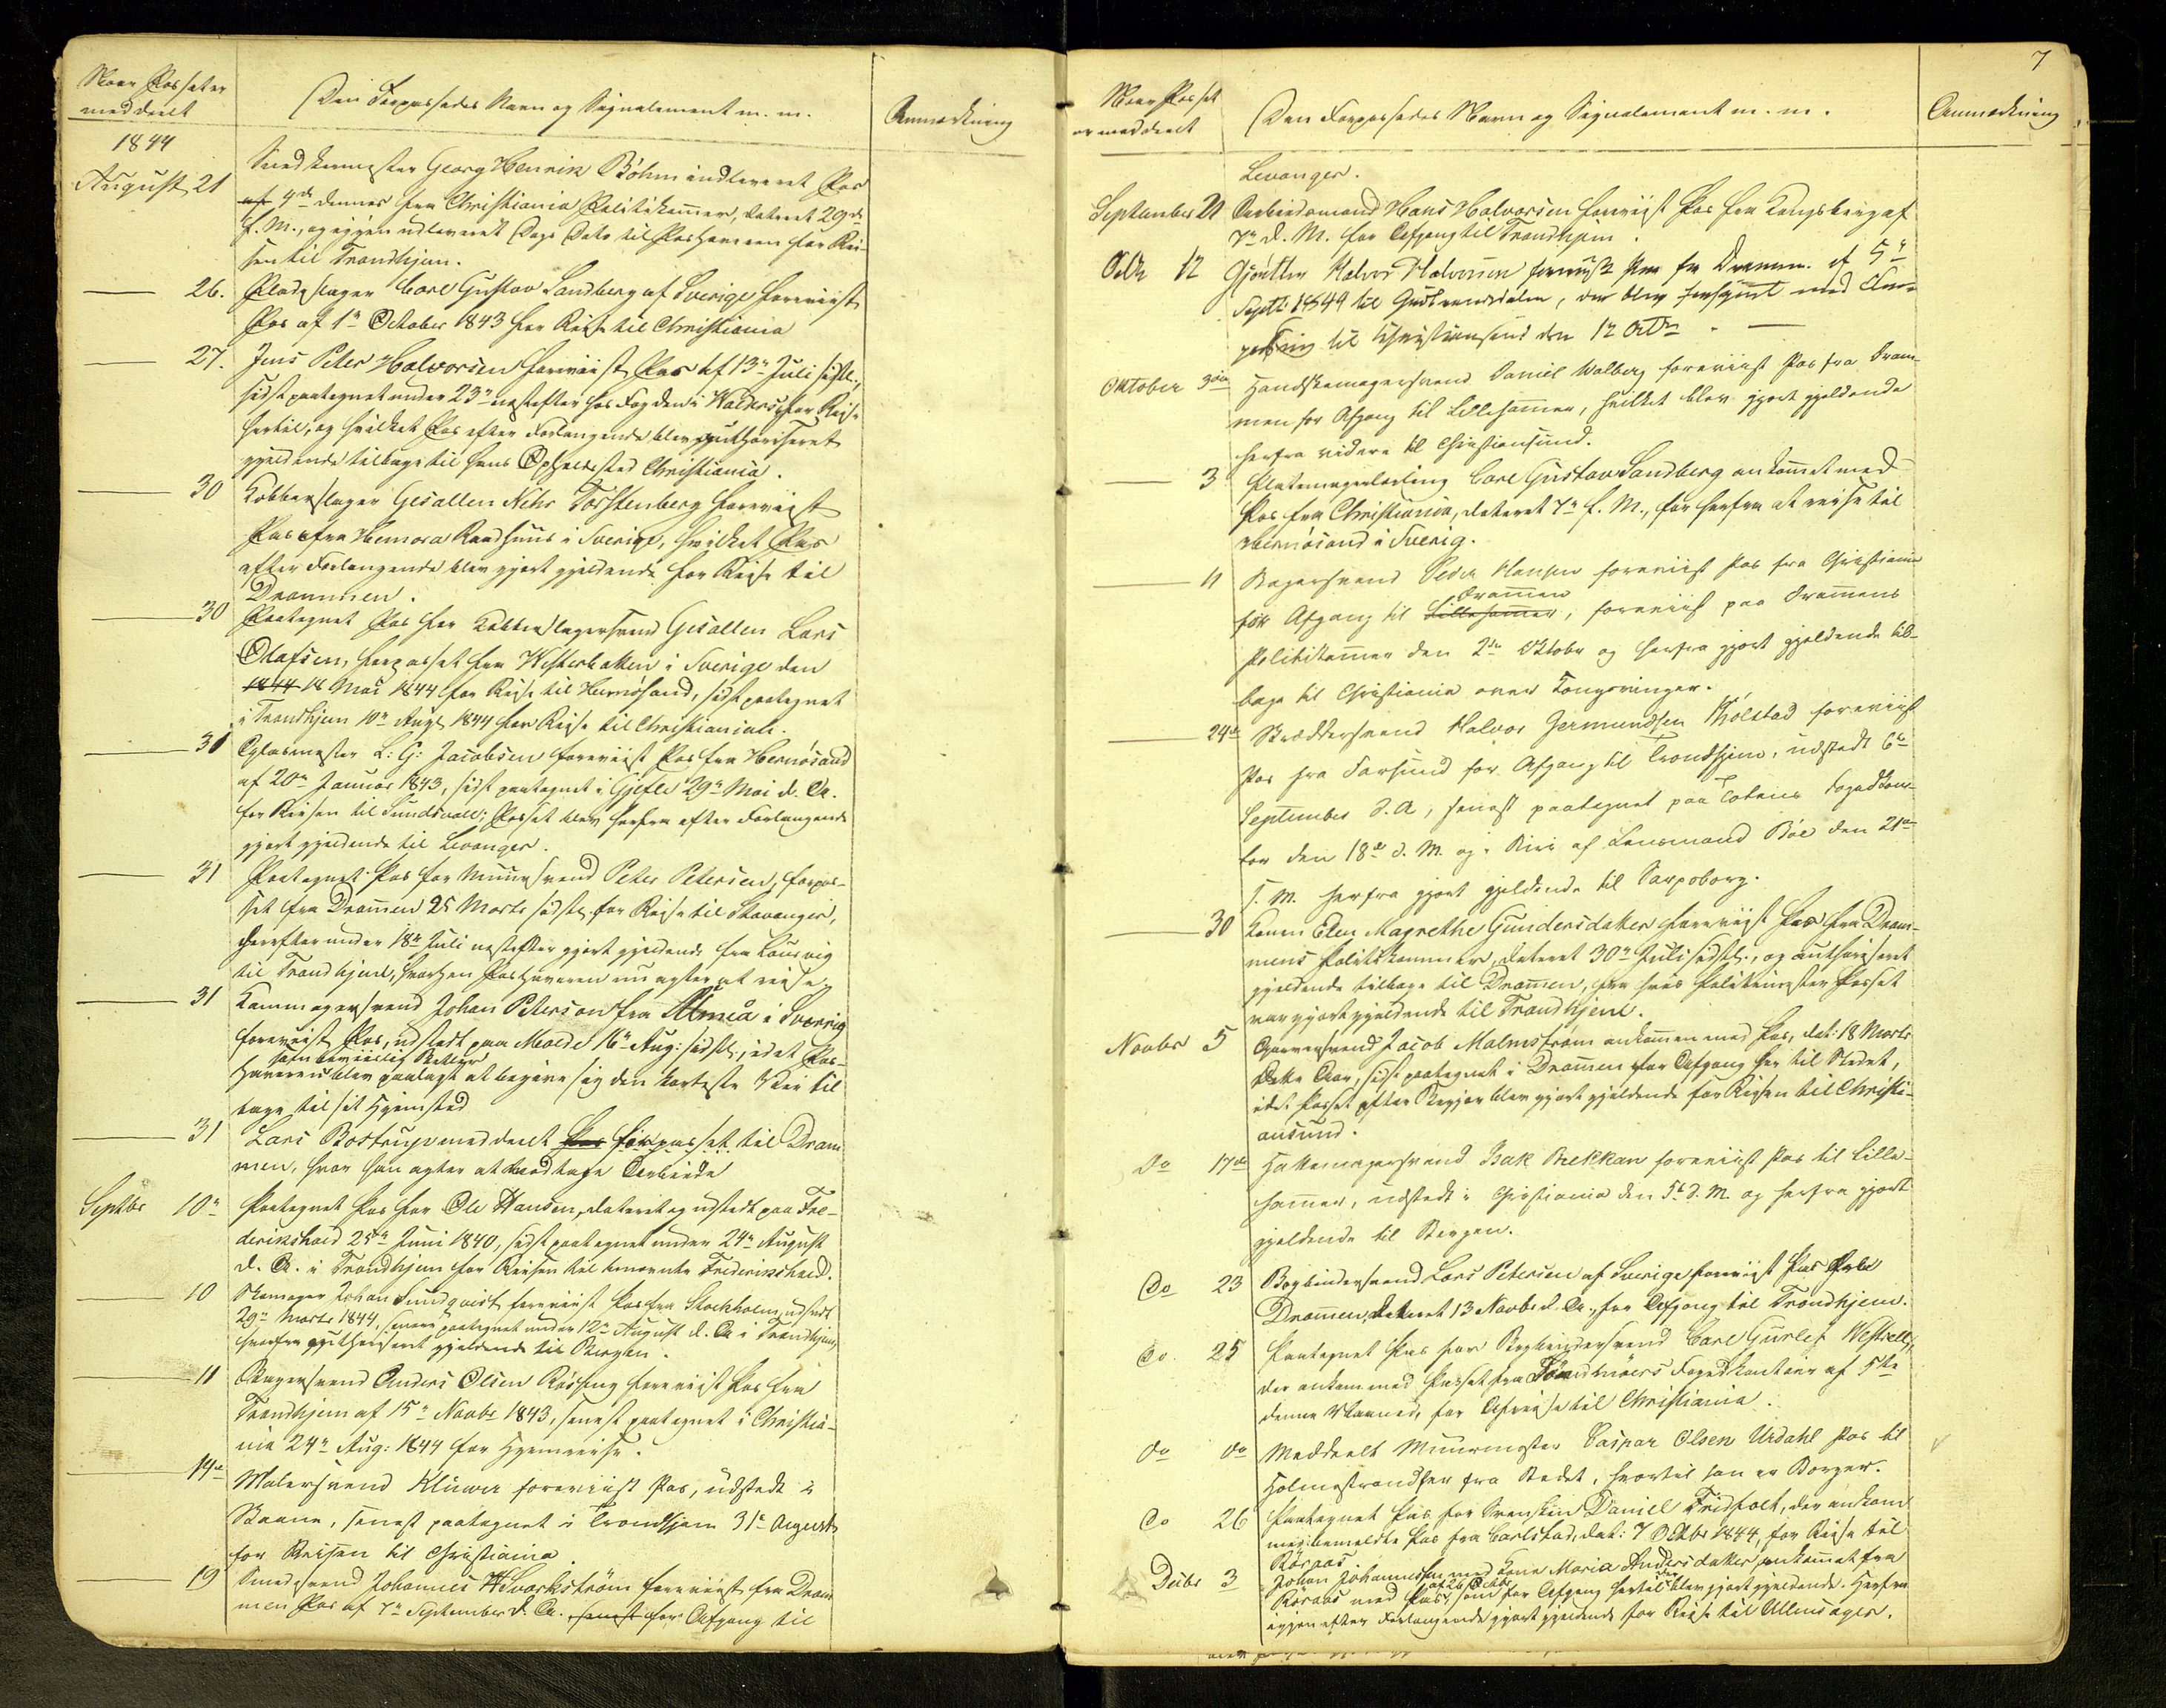 Naar Passet er
meddeelt
Den Forpassedes Navn og Signalement m. m.
Anmærkning
1844
August 21
Snedkermester Georg Henrik Böhm indleveret Pas
af 4de dennes fra Christiania Politikammer, dateret 29de
f. M., og igjen udleveret Dags Dato til Pashaveren for Rei-
sen til Trondhjem.
26.
Pladslager Carl Gustav Sandberg af Sverige foreviist
Pas af 1n October 1843 for Reise til Christiania
27.
Jens Peter Halvorsen foreviist Pas af 13n Juli sidstl.,
sidst paategnet under 23n næstefter hos Fogden i Walders for Reise
hertil, og hvilket Pas efter Forlangende blev authoriseret
gjeldende tilbage til hans Opholdssted Christiania.
30
Kobberslager Gesallen Nehr Torstenberg foreviist
Pas fra Hemora Raadhuus i Sverige, hvilket Pas
efter Forlangende blev gjort gjeldende for Reise til
Drammen.
30
Paategnet Pas for Kobberslagersvend Gesallen Lars
Olafsen, forpasset fra Westerbotten i Sverige den
1844 18 Mai 1844 for Reise til Hernösand, sidst paategnet
i Trondhjem 10n Augt 1844 for Reise til Christiania.
31
Glasmester L: G: Jacobsen foreviist Pas fra Hernösand
af 20n Januar 1843, sidst paategnet i Gjefle 29n Mai d. A.
for Reisen til Sundsvall; Passet blev herfra efter Forlangende
gjort gjeldende til Levanger.
31
Paategnet Pas for Muursvend Peter Petersen, forpas-
set fra Dramen 25 Marts sidstl. for Reise til Stavanger,
derefter under 18n Juli næstefter gjort gjeldende fra Laurvig
til Trondhjem, hvorhen Pashaveren nu agter at reise.
31
Kammagersvend Johan Peterson fra Umeå i Sverrig
foreviist Pas, udstedt paa Molde 16n Aug: sidstl., idet Pas-
som beviislig Betler
haveren blev paalagt at begive sig den korteste Vei til
bage til sit Hjemsted
31
Lars Bostrup meddeelt Pas forpasset til Dram
men, hvor han agter at modtage Arbeide
Septbr 10n
Paategnet Pas for Ole Hansen, dateret og udstedt paa Fre-
derikshald 25de Juni 1840, sidst paategnet under 24n August
d. A. i Trondhjem for Reisen til bemeldte Frederikshald.
10
Skomager Johan Sundqvist foreviist Pas fra Stockholm, udstedt
29n Marts 1844, senere paategnet under 12n August d. A. i Trondhjem,
herfra authoriseret gjeldende til Bergen.
11
Bagersvend Anders Olsen Røssing foreviist Pas fra
Trondhjem af 15n Novbr 1843, senest paategnet i Christia-
nia 24n Aug: 1844 for Hjemreise.
14de
Malersvend Klüwer foreviist Pas, udstedt i
Skaane, senest paategnet i Trondhjem 31te August
for Reisen til Christiania.
19
Smedsvend Johannes Swarkström foreviist fra Dram
men Pas af 7n September d. A. senest for Afgang til
7
Naar Passet
er meddeelt
Den Forpassedes Navn og Signalement m. m.
Anmærkning
Levanger.
September 21
Arbeidsmand Hans Halvorsen foreviist Pas fra Kongsberg af
7n d. M. for Afgang til Trondhjem.
Octbr 12
Gjørtler Halvor Halvorsen foreviist Pas fra Drammen af 5te
Septbr 1844 til Gudbrandsdalen, der blev forsynet med Paa-
tegning til Christiansund den 12 Octbr.
Oktober 3die
Handskemagersvend Daniel Walberg foreviist Pas fra Dram-
men for Afgang til Lillehammer, hvilket blev gjort gjeldende
herfra videre til Christiansund.
3
Platemagerlærling Carl Gustav Sandberg ankommet med
Pas fra Christiania, dateret 7n f. M., for herfra at reise til
Hernösand i Sverig.
11
Bagersvend Peder Hansen foreviist Pas fra Christiania
Drammen
for Afgang til Lillehammer, foreviist paa Drammens
Politikammer den 2den Oktobr og herfra gjort gjeldende til-
bage til Christiania over Kongsvinger.
24de
Skræddersvend Halvor Germundsen Thölstad foreviist
Pas fra Farsund for Afgang til Trondhjem, udstedt 6te
September d. A, senest paategnet paa Totens Fogedkon-
tor den 18de d. M. og i Biri af Lensmand Böe den 21de
s. M. herfra gjort gjeldende til Sarpsborg.
30
Konen Elen Magrethe Gundersdatter foreviist Pas fra Dram-
mens Politikammer, dateret 30n Juli sidstl., og authoriseret
gjeldende tilbage til Dramen, fra hvis Politimester Passet
var gjort gjeldende til Trondhjem.
Novbr 5
Garversvend Jacob Malmstrøm ankommen med Pas, dat: 18 Marts
dette Aar, sidst paategnet i Dramen for Afgang her til Stedet,
idet Passet efter Begjær blev gjort gjeldende for Reisen til Christi-
ansund.
Do 17de
Hattemagersvend Isak Brekkan foreviist Pas til Lille-
hammer, udstedt i Christiania den 5te d. M. og herfra gjort
gjeldende til Bergen.
Do 23
Bogbindersvend Lars Petersen af Sverige foreviist Pas fra
Dramen, dateret 13 Novbr d. A., for Afgang til Trondhjem.
Do. 25
Paategnet Pas for Bogbindersvend Carl Gustef Westrell,
der ankom med Passet fra Søndmöers Fogedkontoir af 5te
denne Maaned, for Afreise til Christiania.
do do
Meddeelt Muurmester Caspar Olsen Urdahl Pas til
Holmestrand her fra Stedet, hvortil han er Borger.
Do 26
Paategnet Pas for Svensken Daniel Fridholt, der ankom
med bemeldte Pas fra Carlstad, dat: 7 Octbr 1844, for Reise til
Röraas.
Debr 3
Johan Johannessen med Kone Maria Andersdatter ankommet fra
af 26 Octbr
Röraas med Pas, som for Afgang hertil blev gjort gjeldende. Herfra
igjen efter Forlangende gjort gjeldende for Reise til Ullensager.